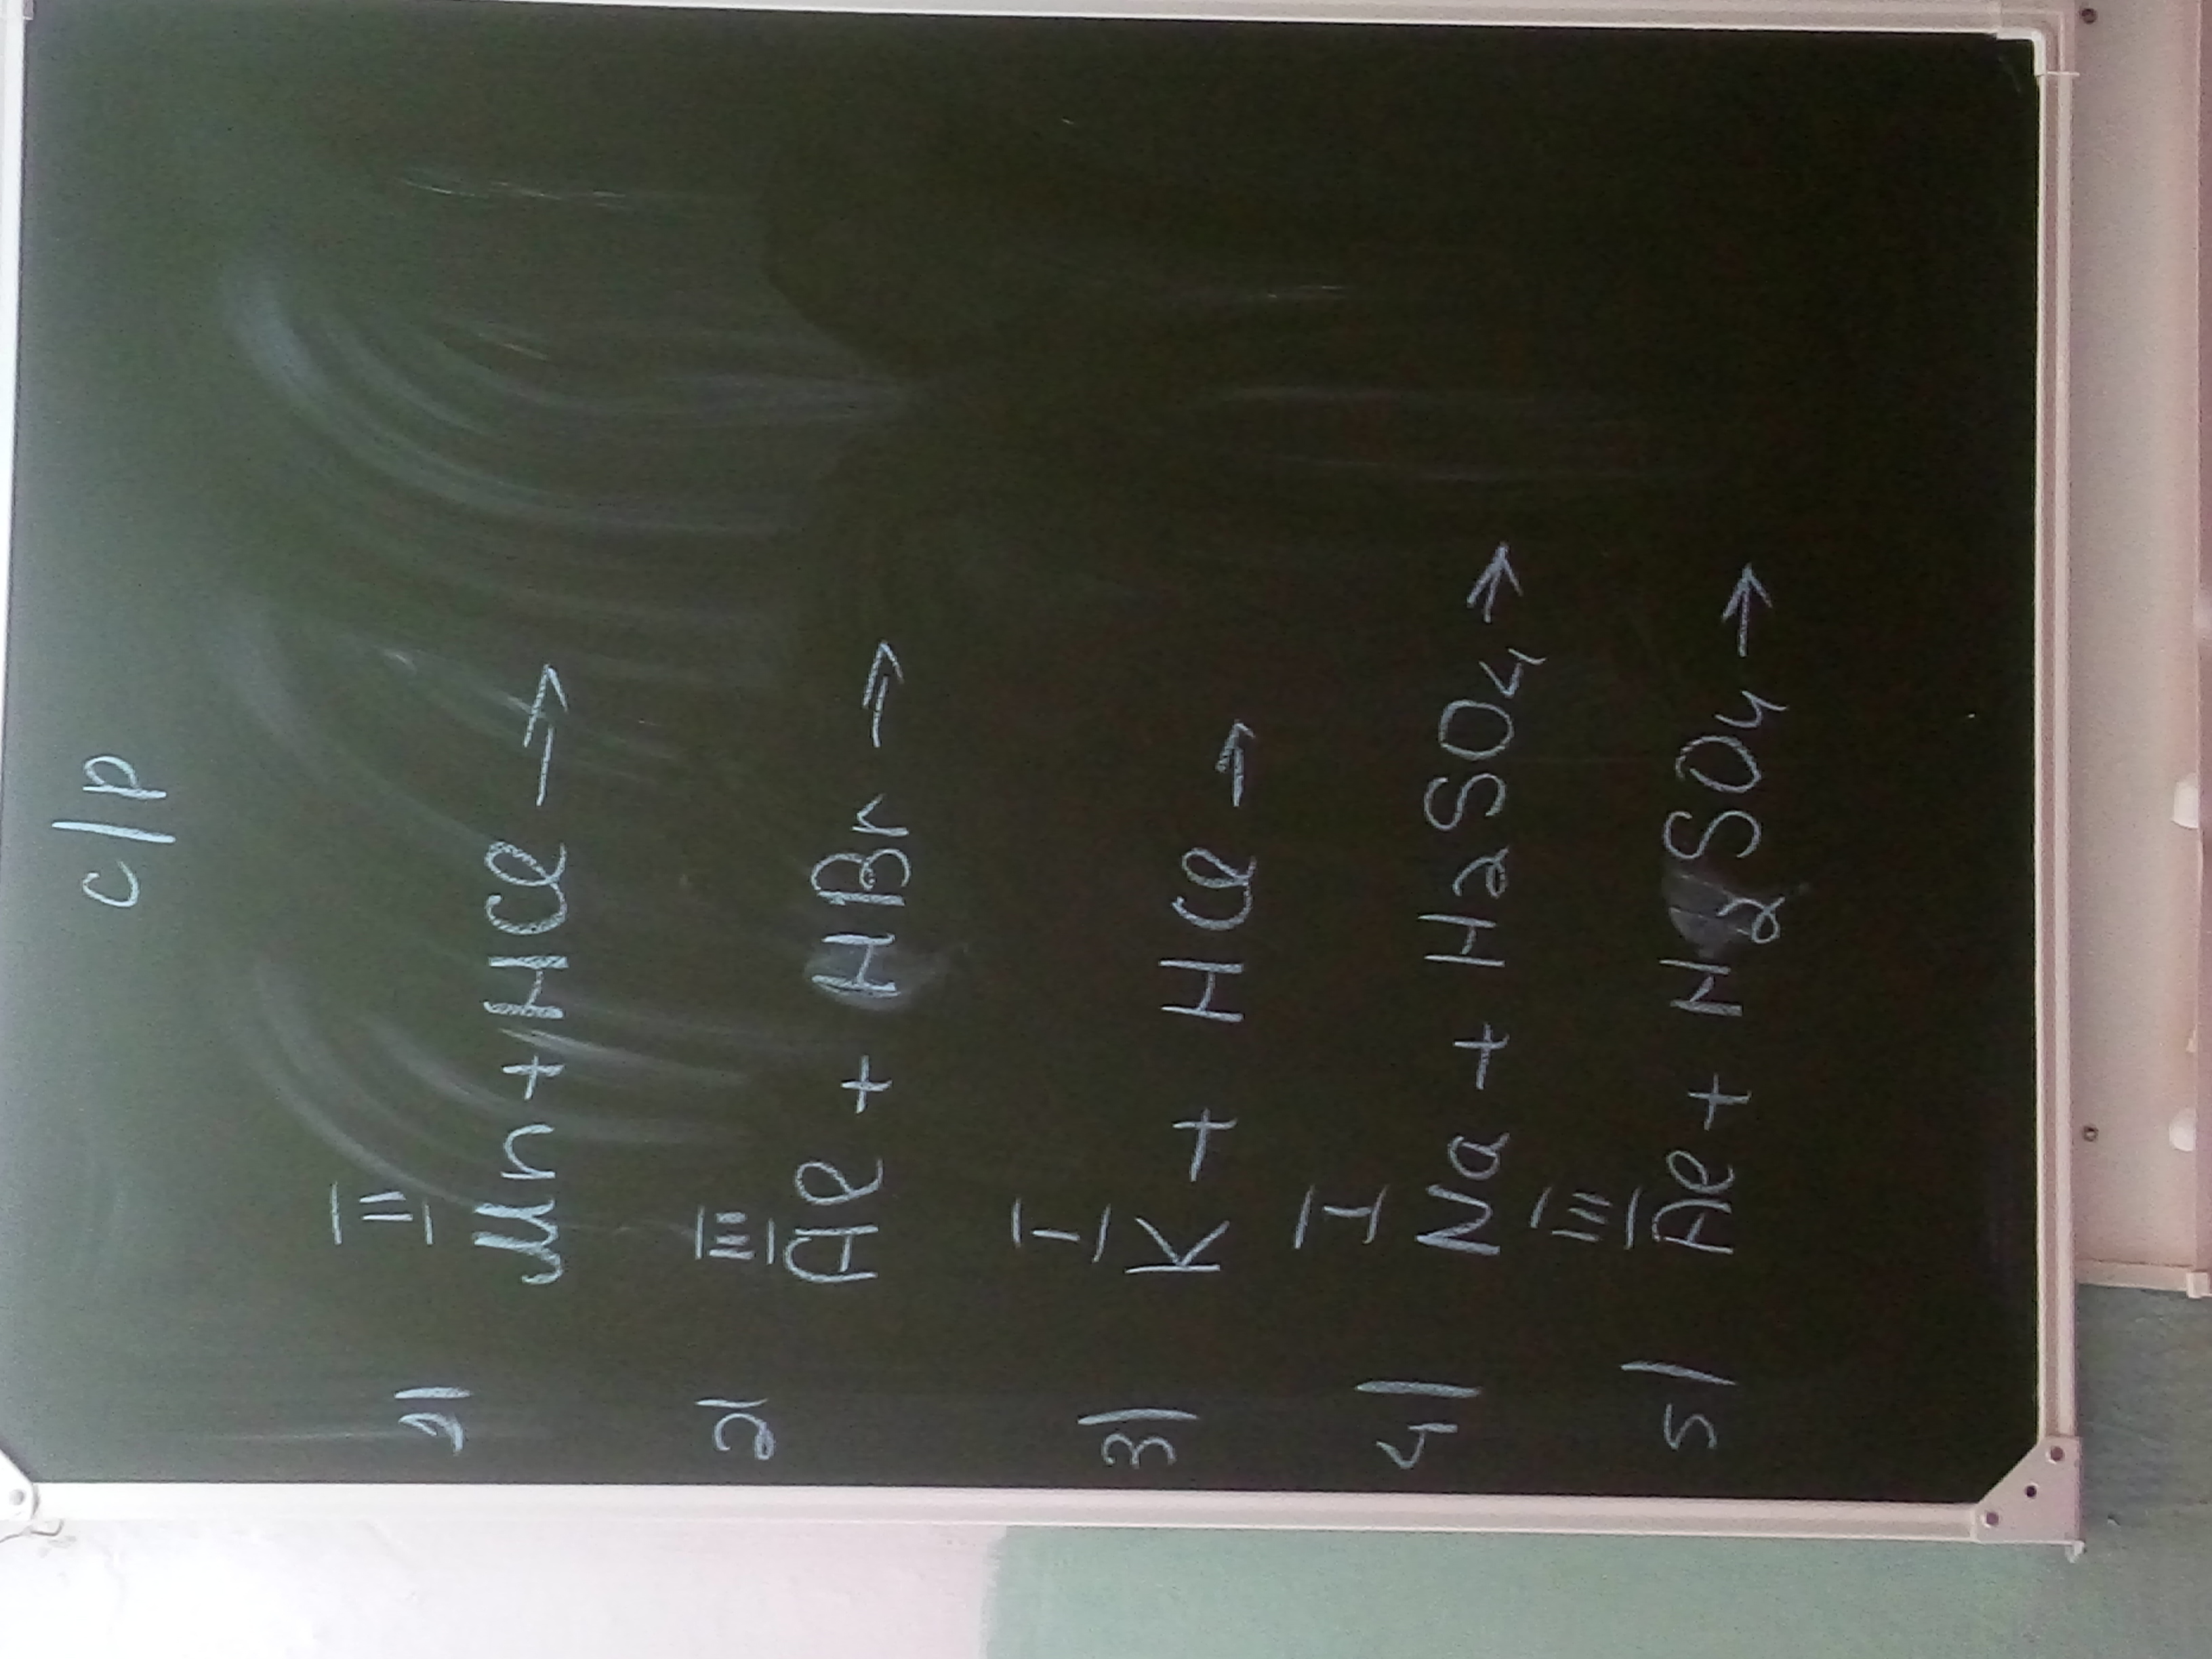 с/р
1)
II
Mn + HCl →
2)
III
Al + HBr →
3)
I
K + HCl →
4)
I
Na + H2SO4 →
5)
III
Al + H2SO4 →